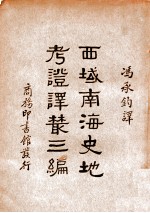 馮承鈞譯
西域南海史地
考證譯叢三編
商務印書館發行